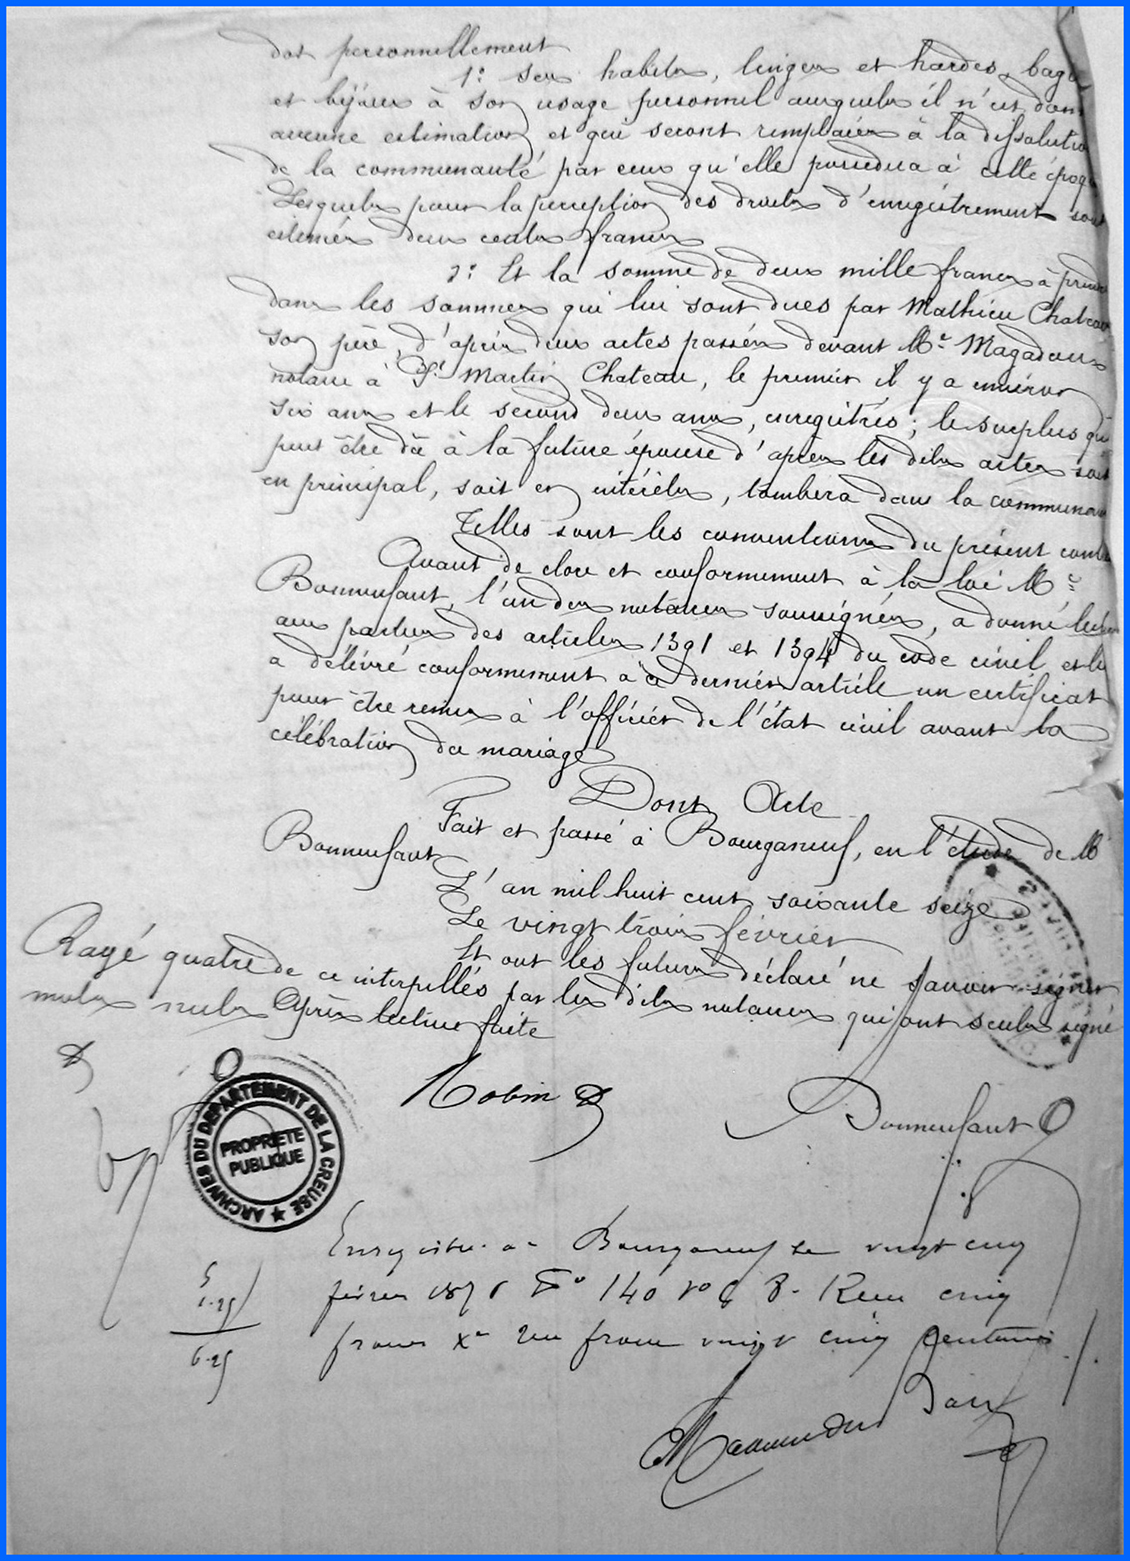 dot personnellement
1º ses habits, linges et hardes, bagu
et bijoux à son usage personnel auxquels il n'est donn
aucune estimation et qui seront remplacés à la dissolutio
de la communauté par ceux qu'elle possedera à cette époqu
Lesquels pour la perception des droits d'enregistrement sont
estimés deux cents francs
2º Et la somme de deux mille francs à prend
dans les sommes qui lui sont dues par Mathieu Chateau
son père, d'après deux actes passés devant Me Magadoux
notaire à St Martin Chateau, le premier il y a environ
six ans et le second deux ans, enregistrés; le surplus qui
peut être dû à la future épouse d'après les dits actes soit
en principal, soit en intérêts, tombera dans la communau
Telles sont les conventions du présent contra
Avant de clore et conformement à la loi Me
Bonnenfant, l'un des notaires soussignés, a donné lectur
aux parties des articles 1391 et 1394 du code civil, et le
a délivré conformement à ce dernier article un certificat
pour être remis à l'officier de l'état civil avant la
célébration du mariage
Dont Acte
Fait et passé à Bourganeuf, en l'étude de M
Bonnenfant
L'an mil huit cent soixante seize
Le vingt trois février
Et ont les futurs déclaré ne savoir signer
de ce interpellés par les dits notaires qui ont seuls signé
Après lecture faite
Rayé quatre
mots nuls
Robin
Bonnenfant
ARCHIVES DU DÉPARTEMENT DE LA CREUSE
PROPRIÉTÉ
PUBLIQUE
Enregistré à Bourganeuf le vingt cinq
février 1876 Fo 140 Vo C 8. Reçu cinq
francs Xe un franc vingt cinq centimes
5
1.25
6.25